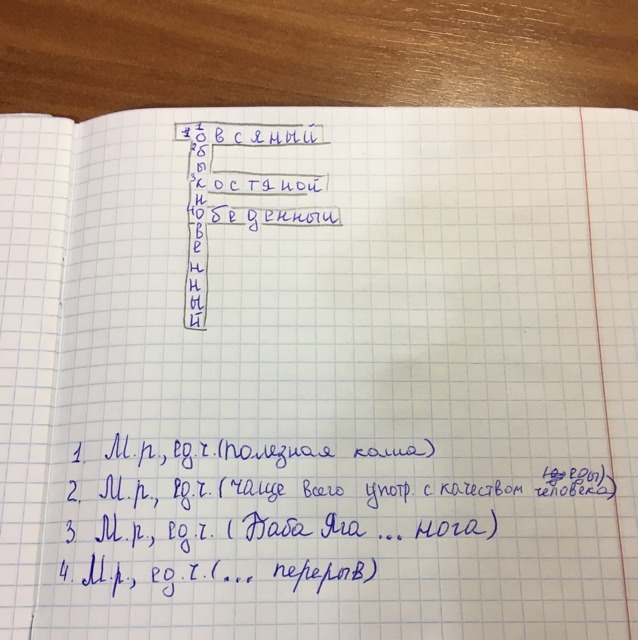 1 овсяный
2б
ы
3костяной
н
4обеденный
в
е
н
н
ы
й
1. М.р., ед.ч. (полезная каша)
еды)
2. М.р., ед.ч. (чаще всего употр. с качеством человека)
3 М.р., ед.ч. (Баба Яга ... нога)
4. М.р., ед.ч. (... перерыв)